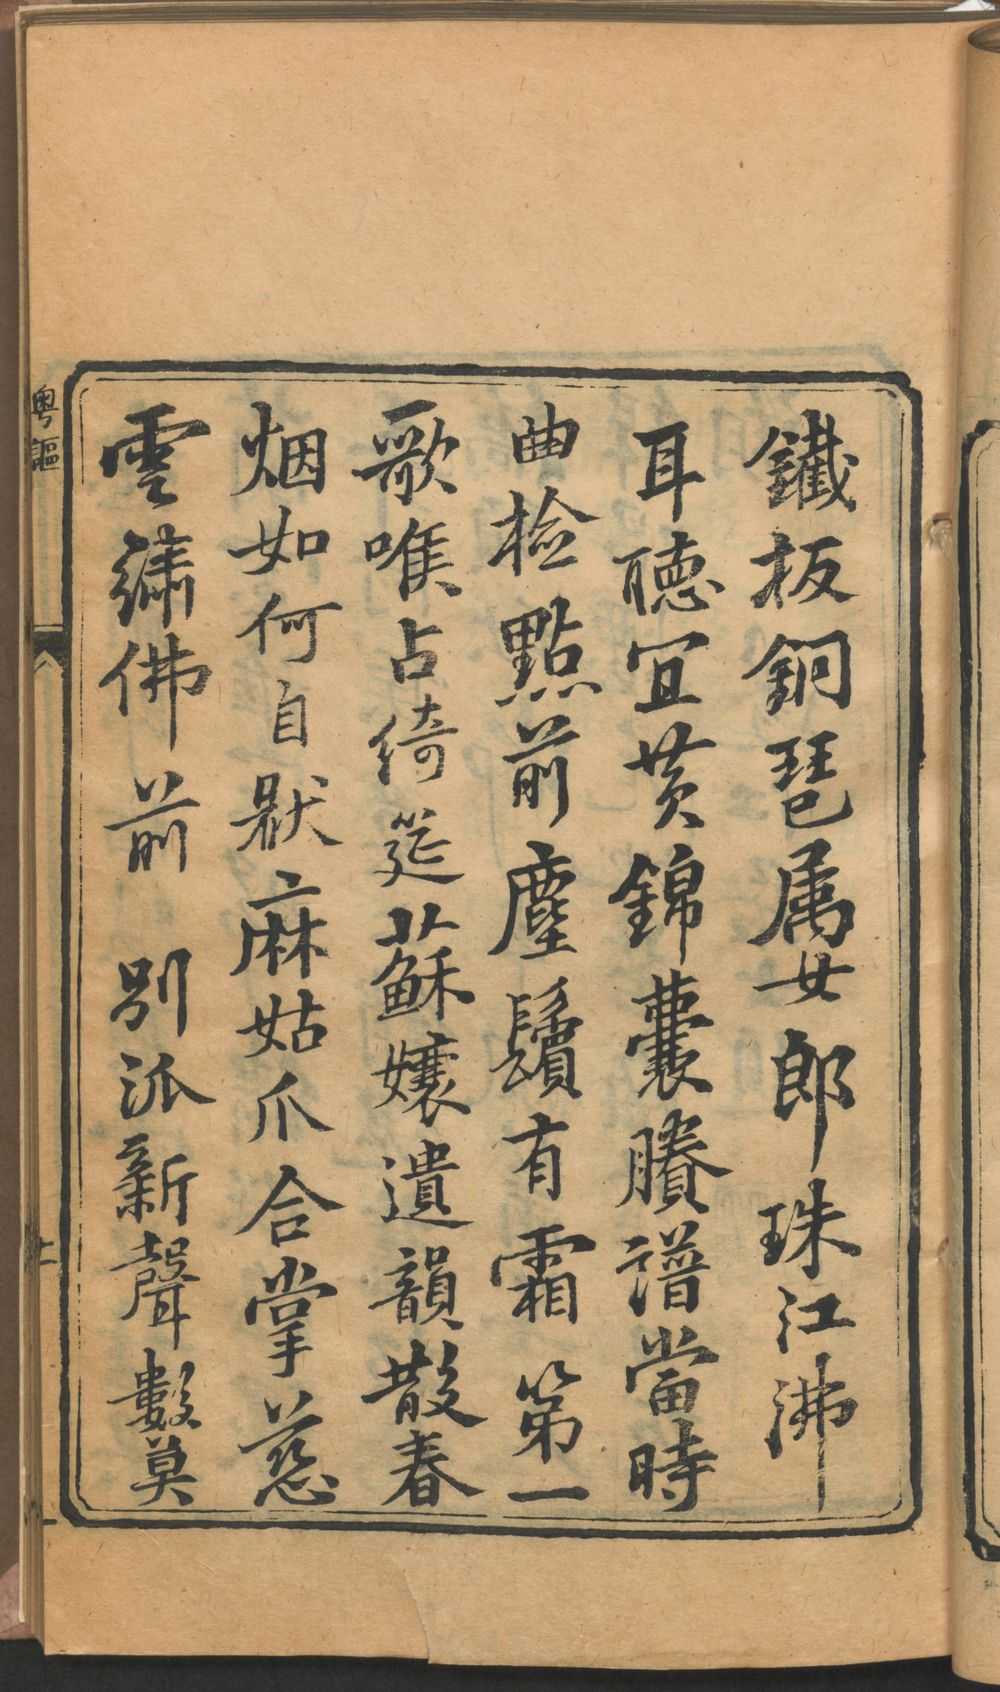 鐵板銅琶属女郎珠江沸
耳聽宜黄錦囊賸譜當時
曲檢點前塵鬢有霜第一
歌喉占綺筵蘇孃遺韻散春
烟如何自厭麻姑爪合掌慈
雲繡佛前別派新聲數莫
粤謳